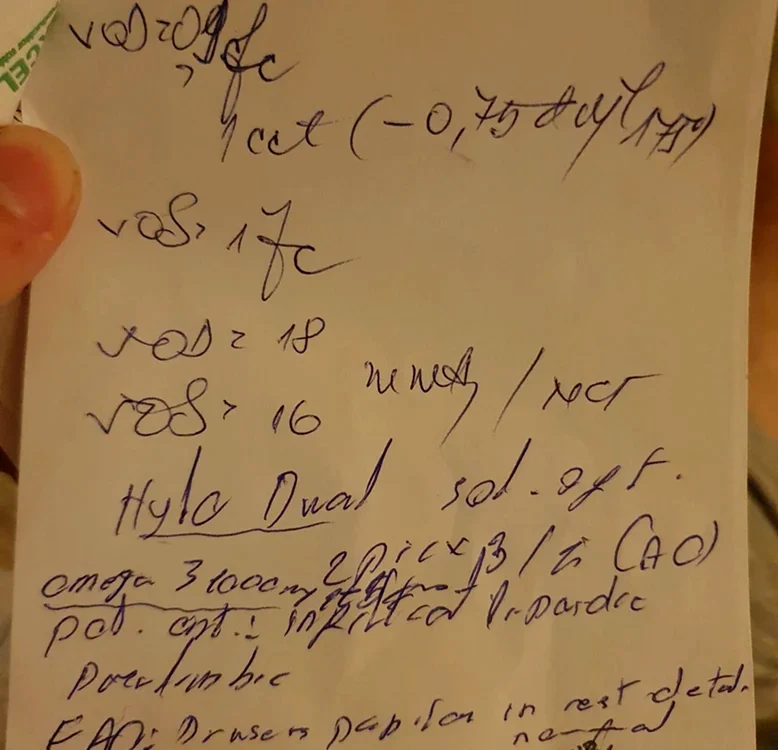 VOD = 0,9 fc
1 cct (-0,75 dcyl 175°)
VOS = 1 fc
VOD = 18
VOS = 16 mmHg / NCT
Hylo Dual sol. oft.
omega 3 1000 mg
2 pic x 3 / zi (AO)
pol. ant.:
FAO: Drusen papilar in rest detal.
normal